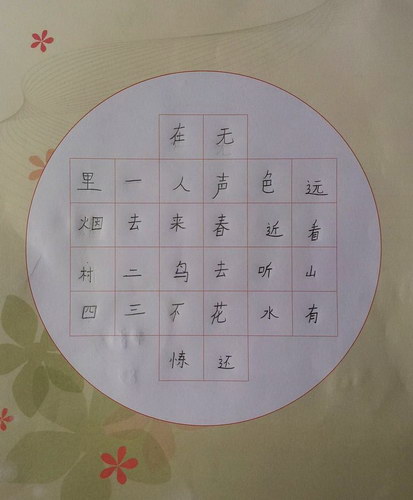 在 无
里 一 人 声 色 远
烟 去 来 春 近 看
村 二 鸟 去 听 山
四 三 不 花 水 有
惊 还